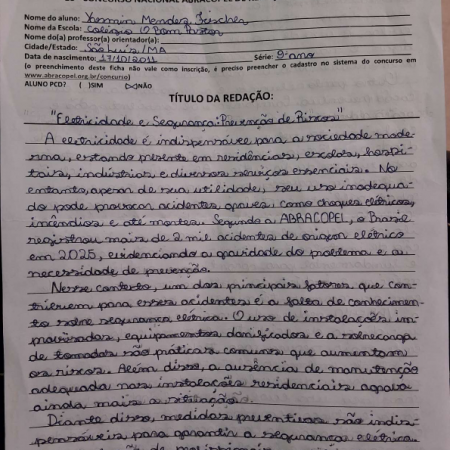 CONCURSO NACIONAL ABRACOPEL DE
Nome do aluno: Yasmin Mendez
Nome da Escola: Colégio O Bom Pastor
Nome do(a) professor(a) orientador(a):
Cidade/Estado: São Luís/MA
Data de nascimento: 17/10/2011 Série: 9º ano
(o preenchimento desta ficha não vale como inscrição, é preciso preencher o cadastro no sistema do concurso em
www.abracopel.org.br/concurso)
ALUNO PCD? ( )SIM (X)NÃO
TÍTULO DA REDAÇÃO:
"Eletricidade e Segurança: Prevenção de Riscos"
A eletricidade é indispensável para a sociedade mode-
rna, estando presente em residências, escolas, hospi-
tais, indústrias e diversos serviços essenciais. No
entanto, apesar de sua utilidade, seu uso inadequa-
do pode provocar acidentes graves, como choques elétricos,
incêndios e até mortes. Segundo a ABRACOPEL, o Brasil
registrou mais de 2 mil acidentes de origem elétrica
em 2025, evidenciando a gravidade do problema e a
necessidade de prevenção.
Nesse contexto, um dos principais fatores que con-
tribuem para esses acidentes é a falta de conhecimen-
to sobre segurança elétrica. O uso de instalações im-
provisadas, equipamentos danificados e a sobrecarga
de tomadas são práticas comuns que aumentam
os riscos. Além disso, a ausência de manutenção
adequada nas instalações residenciais agrava
ainda mais a situação.
Diante disso, medidas preventivas são indis-
pensáveis para garantir a segurança elétrica.